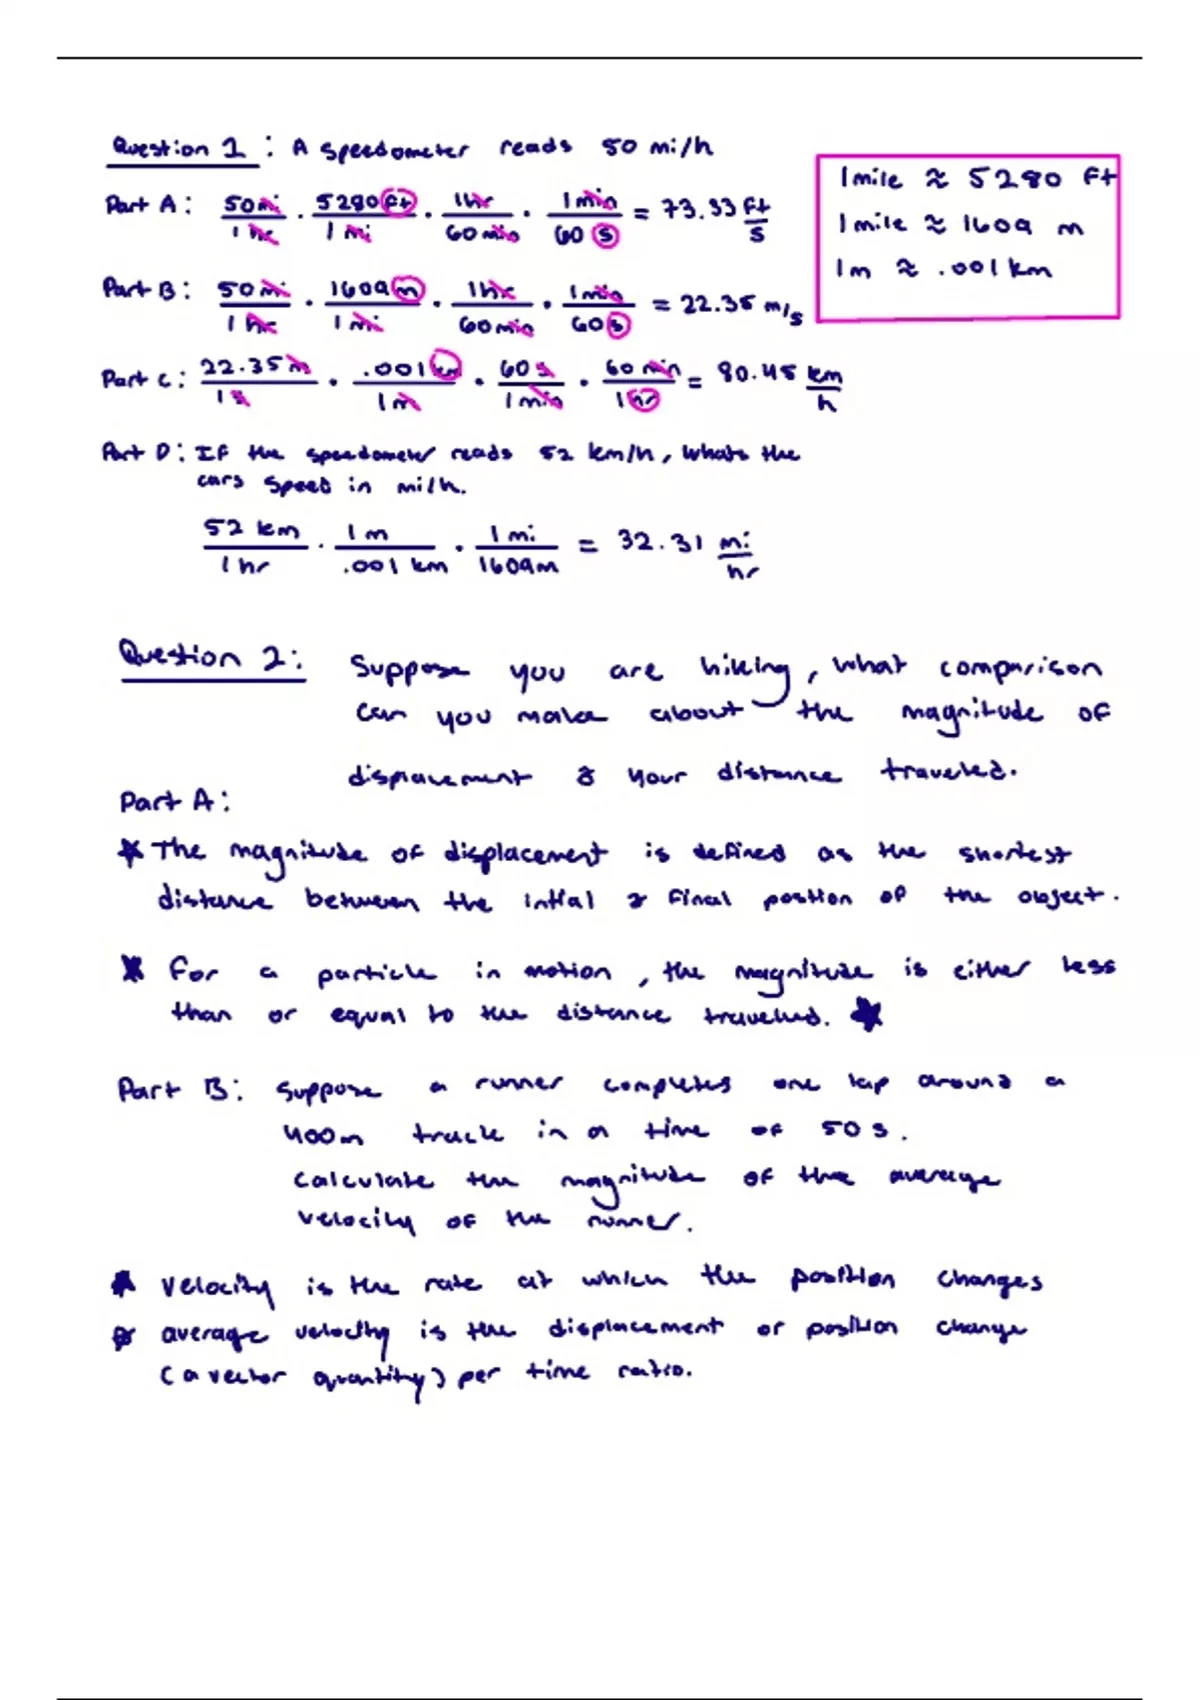 Question 1: A speedometer reads 50 mi/h
1 mile ≈ 5280 ft
1 mile ≈ 1609 m
1m ≈ .001 km
Part A: 50mi/1 hr · 5280 ft/1 mi · 1hr/60 min · 1min/60 s = 73.33 ft/s
Part B: 50 mi/1 hr · 1609 m/1 mi · 1hr/60min · 1min/60s = 22.35 m/s
Part C: 22.35 m/1 s · .001 km/1 m · 60 s/1 min · 60 min/1 hr = 80.45 km/h
Part D: If the speedometer reads 52 km/h, whats the
cars speed in mi/h.
52 km/1 hr · 1 m/.001 km · 1 mi/1609m = 32.31 mi/hr
Question 2: Suppose you are hiking, what comparison
can you make about the magnitude of
displacement & your distance traveled.
Part A:
* The magnitude of displacement is defined as the shortest
distance between the intial & final position of the object.
* For a particle in motion, the magnitude is either less
than or equal to the distance traveled. *
Part B: Suppose a runner completes one lap around a
400m track in a time of 50 s.
Calculate the magnitude of the average
velocity of the runner.
* Velocity is the rate at which the position changes
* average velocity is the displacement or position change
(a vector quantity) per time ratio.